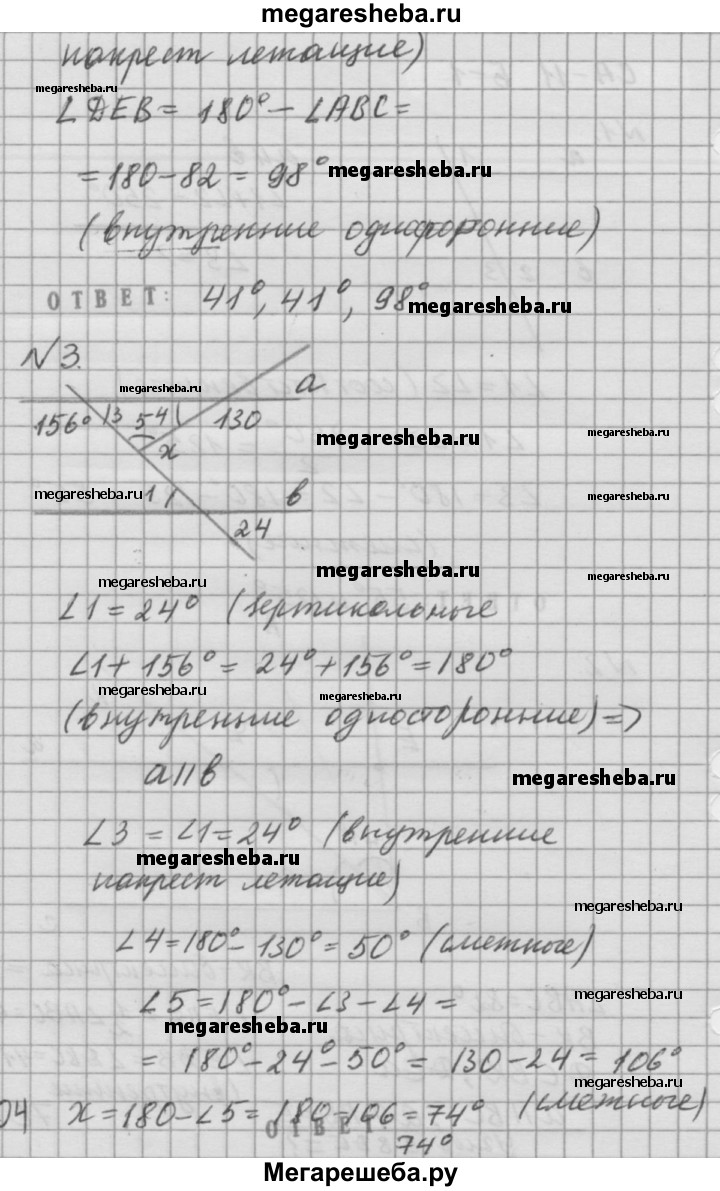 megaresheba.ru
накрест лежащие)
megaresheba.ru
∠DEB = 180° − ∠ABC =
= 180 − 82 = 98° megaresheba.ru
(внутренние односторонние)
ОТВЕТ: 41°, 41°, 98°
megaresheba.ru
№3.
megaresheba.ru a
156° 3 5 4 130
x megaresheba.ru
megaresheba.ru 1 в megaresheba.ru
24
megaresheba.ru megaresheba.ru
megaresheba.ru
∠1 = 24° (вертикальные
∠1 + 156° = 24° + 156° = 180°
megaresheba.ru megaresheba.ru
(внутренние односторонние) =>
a || в megaresheba.ru
∠3 = ∠1 = 24° (внутренние
megaresheba.ru
накрест лежащие)
megaresheba.ru
∠4 = 180° − 130° = 50° (смежные)
megaresheba.ru
∠5 = 180° − ∠3 − ∠4 =
megaresheba.ru
= 180° − 24° − 50° = 130 − 24 = 106°
megaresheba.ru
04 x = 180 − ∠5 = 180 − 106 = 74° (смежные)
ОТВЕТ
74°
Мегарешеба.ру